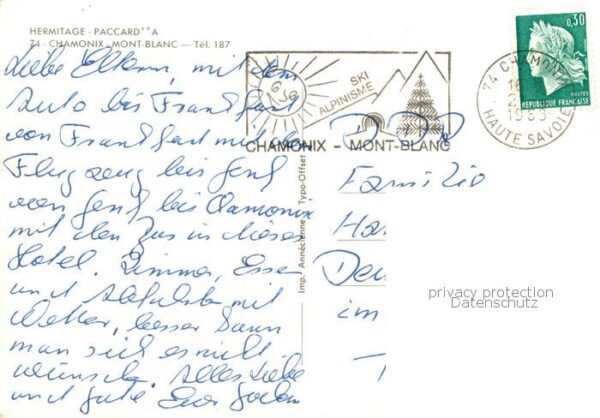 HERMITAGE - PACCARD**A
74 - CHAMONIX - MONT-BLANC — Tél. 187
Liebe Eltern, mit dem
Auto bis Frankfurt
von Frankfurt mit dem
Flugzeug bis Genf
von Genf bis Chamonix
mit dem Bus in dieses
Hotel. Zimmer, Essen
und mit
Wetter, besser kann
man sich es nicht
wünschen. Alles Liebe
und Gute Eure
Imp. Annécienne Typo-Offset
SKI
ALPINISME
CHAMONIX - MONT-BLANC
74 CHAMONIX
HAUTE SAVOIE
0,30
POSTES
REPUBLIQUE FRANÇAISE
Familie
Ha
im
privacy protection
Datenschutz